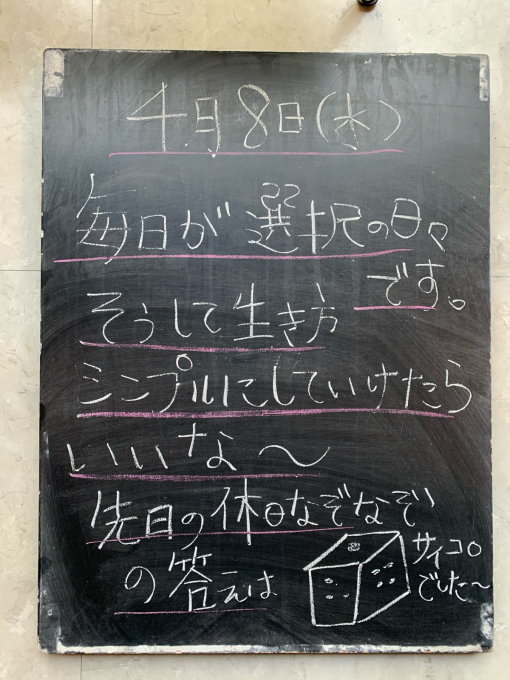 4月8日(水)
毎日が選択の日々
です。
そうして生き方
シンプルにしていけたら
いいな〜
先日の休日なぞなぞ
の答えは
サイコロ
でした〜